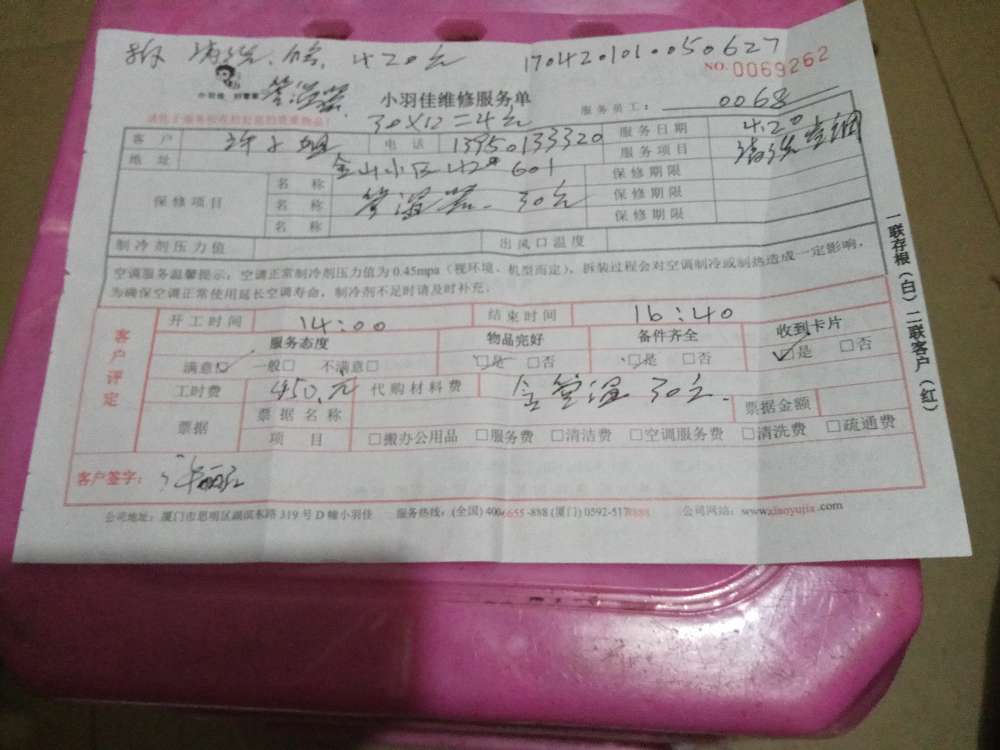 清洗 420元 1704201010050627
NO.0069262
小羽佳
管温器 小羽佳维修服务单 服务员工：0068
30×12=4元
客户 许小姐 电话 13950133320 服务日期 4.20
地址 金山小区42# 601 服务项目 清洗空调
保修项目 名称 保修期限
名称 管温器 30元 保修期限
名称 保修期限
制冷剂压力值 出风口温度
空调服务温馨提示：空调正常制冷剂压力值为0.45mpa（视环境、机型而定），拆装过程会对空调制冷或制热造成一定影响，
为确保空调正常使用延长空调寿命，制冷剂不足时请及时补充。
客户评定
开工时间 14:00 结束时间 16:40
服务态度 物品完好 备件齐全 收到卡片
满意☑ 一般□ 不满意□ ☑是 □否 ☑是 □否 ☑是 □否
工时费 450元 代购材料费 含管温30元
票据 票据名称 票据金额
项目 □搬办公用品 □服务费 □清洁费 □空调服务费 □清洗费 □疏通费
客户签字：许丽
公司地址：厦门市思明区湖滨东路319号D幢小羽佳 服务热线：(全国) 4006655-888 (厦门) 0592-5178888 公司网站：www.xiaoyujia.com
一联存根（白）二联客户（红）